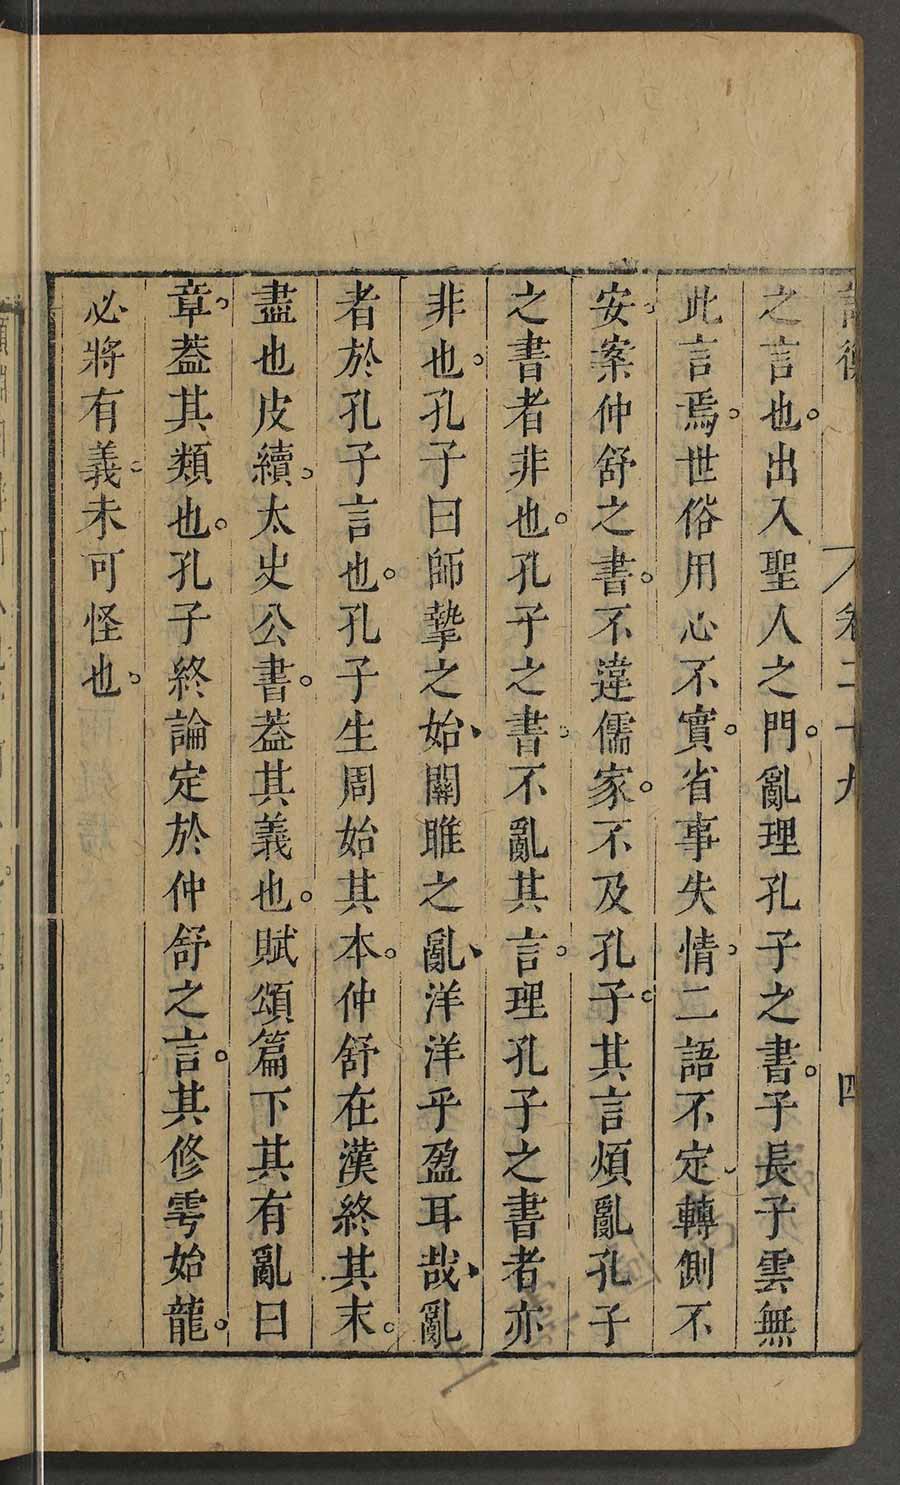 論衡 卷二十九 四
之言也。出入聖人之門。亂理孔子之書。子長子雲無
此言焉。世俗用心不實。省事失情。二語不定、轉側不
安。案仲舒之書。不違儒家。不及孔子。其言煩亂孔子
之書者非也。孔子之書。不亂其言。理孔子之書者亦
非也。孔子曰師摯之始、關雎之亂、洋洋乎盈耳哉、亂
者於孔子言也。孔子生周始其本。仲舒在漢終其末。
盡也皮續。太史公書。葢其義也。賦頌篇下其有亂曰
章。葢其類也。孔子終論定於仲舒之言。其修雩始龍。
必將有義。未可怪也。